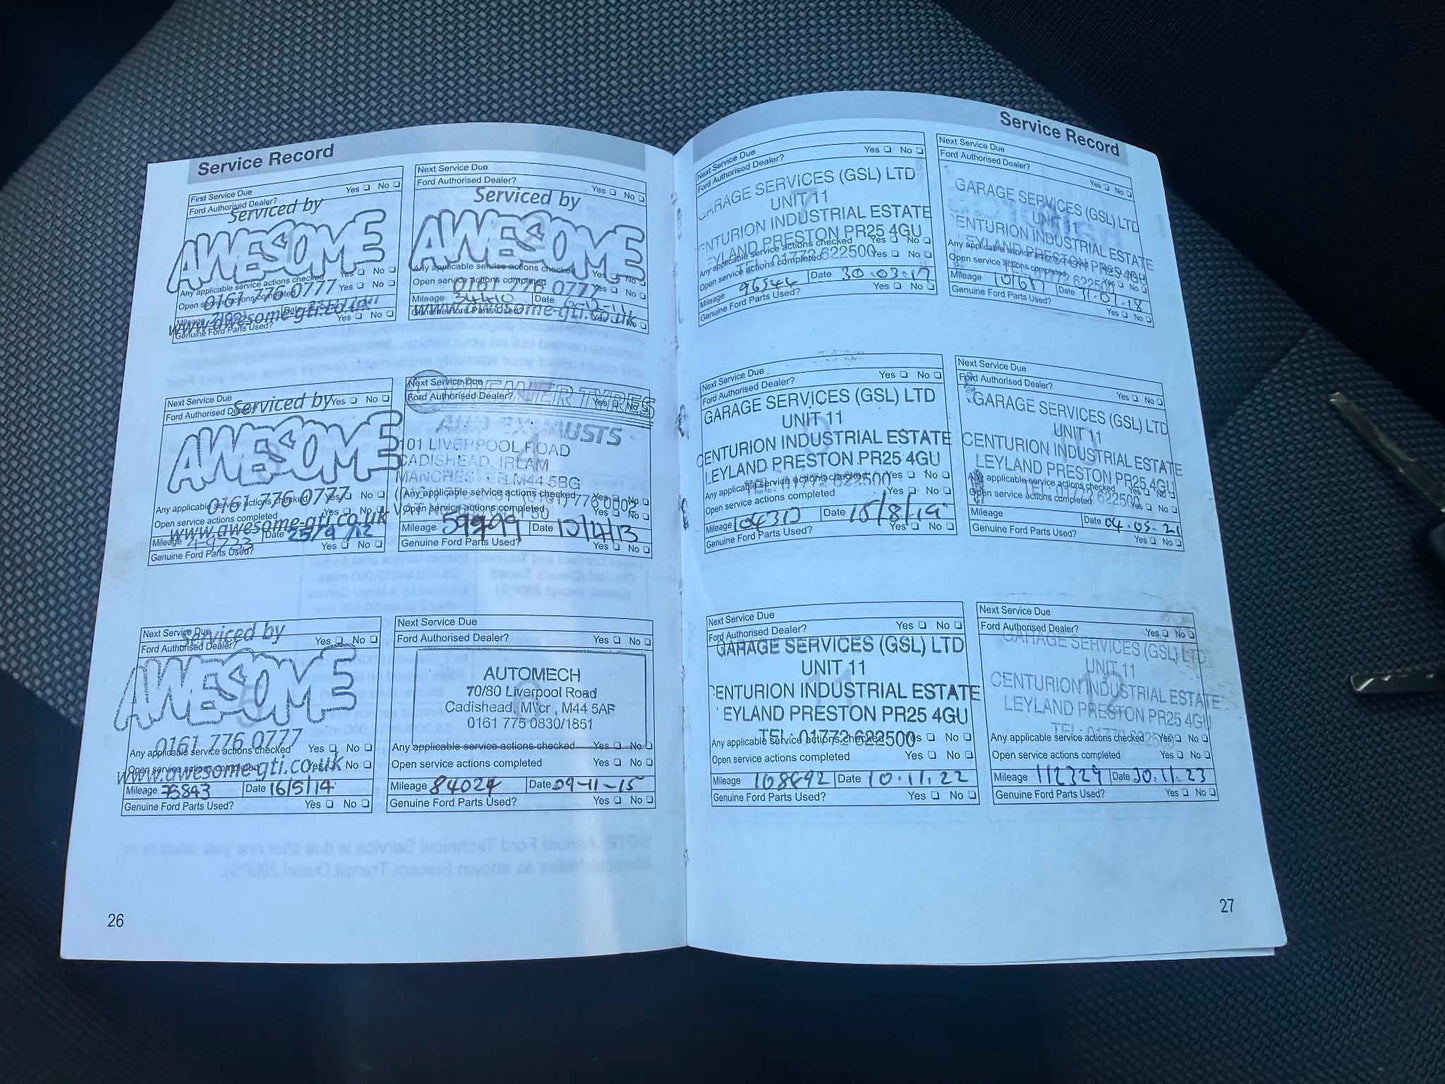 Service Record
First Service Due
Ford Authorised Dealer? Yes No
Serviced by
AWESOME
Any applicable service actions checked Yes No
0161 776 0777
Open service actions completed
www.awesome-gti.co.uk
Mileage
Genuine Ford Parts Used? Yes No
Next Service Due
Ford Authorised Dealer? Yes No
Serviced by
AWESOME
Any applicable service actions checked Yes
0161 776 0777
Open service actions completed Yes No
Mileage Date
www.awesome-gti.co.uk
Genuine Ford Parts Used? Yes No
Next Service Due
Ford Authorised Dealer? Yes No
Serviced by
AWESOME
Any applicable service actions checked Yes No
0161 776 0777
Open service actions completed Yes No
www.awesome-gti.co.uk
Mileage Date 25/9/12
Genuine Ford Parts Used? Yes No
Next Service Due
Ford Authorised Dealer? Yes No
TYRES
AND EXHAUSTS
101 LIVERPOOL ROAD
CADISHEAD, IRLAM
MANCHESTER M44 5BG
Any applicable service actions checked Yes No
Open service actions completed
Mileage 59799 Date
Genuine Ford Parts Used? Yes No
Next Service Due
Ford Authorised Dealer? Yes No
Serviced by
AWESOME
0161 776 0777
Any applicable service actions checked Yes No
Open service actions completed Yes No
www.awesome-gti.co.uk
Mileage 75843 Date 16/5/14
Genuine Ford Parts Used? Yes No
Next Service Due
Ford Authorised Dealer? Yes No
AUTOMECH
70/80 Liverpool Road
Cadishead, M\cr , M44 5AF
0161 775 0830/1851
Any applicable service actions checked Yes No
Open service actions completed Yes No
Mileage 84024 Date 09-11-15
Genuine Ford Parts Used? Yes No
26
Service Record
Next Service Due Yes No
Ford Authorised Dealer?
GARAGE SERVICES (GSL) LTD
UNIT 11
ENTURION INDUSTRIAL ESTATE
EYLAND PRESTON PR25 4GU
Any applicable service actions checked Yes No
TEL: 01772 622500
Open service actions completed Yes No
Mileage 96544 Date 30.03.17
Genuine Ford Parts Used? Yes No
Next Service Due
Ford Authorised Dealer? Yes No
GARAGE SERVICES (GSL) LTD
UNIT 11
ENTURION INDUSTRIAL ESTATE
EYLAND PRESTON PR25 4GU
Any applicable service actions checked
Open service actions completed
622500
Mileage Date
Genuine Ford Parts Used? Yes No
Next Service Due
Ford Authorised Dealer? Yes No
GARAGE SERVICES (GSL) LTD
UNIT 11
CENTURION INDUSTRIAL ESTATE
LEYLAND PRESTON PR25 4GU
Any applicable service actions checked Yes No
TEL: 01772 622500
Open service actions completed Yes No
Mileage 104310 Date 15/8/19
Genuine Ford Parts Used? Yes No
Next Service Due
Ford Authorised Dealer? Yes No
GARAGE SERVICES (GSL) LTD
UNIT 11
CENTURION INDUSTRIAL ESTATE
LEYLAND PRESTON PR25 4GU
Any applicable service actions checked Yes No
Open service actions completed Yes No
622500
Mileage Date 04.05.21
Genuine Ford Parts Used? Yes No
Next Service Due
Ford Authorised Dealer? Yes No
GARAGE SERVICES (GSL) LTD
UNIT 11
CENTURION INDUSTRIAL ESTATE
EYLAND PRESTON PR25 4GU
TEL: 01772 622500
Any applicable service actions checked Yes No
Open service actions completed Yes No
Mileage 108692 Date 10.11.22
Genuine Ford Parts Used? Yes No
Next Service Due
Ford Authorised Dealer? Yes No
GARAGE SERVICES (GSL) LTD
UNIT 11
12
CENTURION INDUSTRIAL ESTATE
LEYLAND PRESTON PR25 4GU
TEL: 01772 622500
Any applicable service actions checked Yes No
Open service actions completed Yes No
Mileage 112329 Date 30.11.23
Genuine Ford Parts Used? Yes No
27